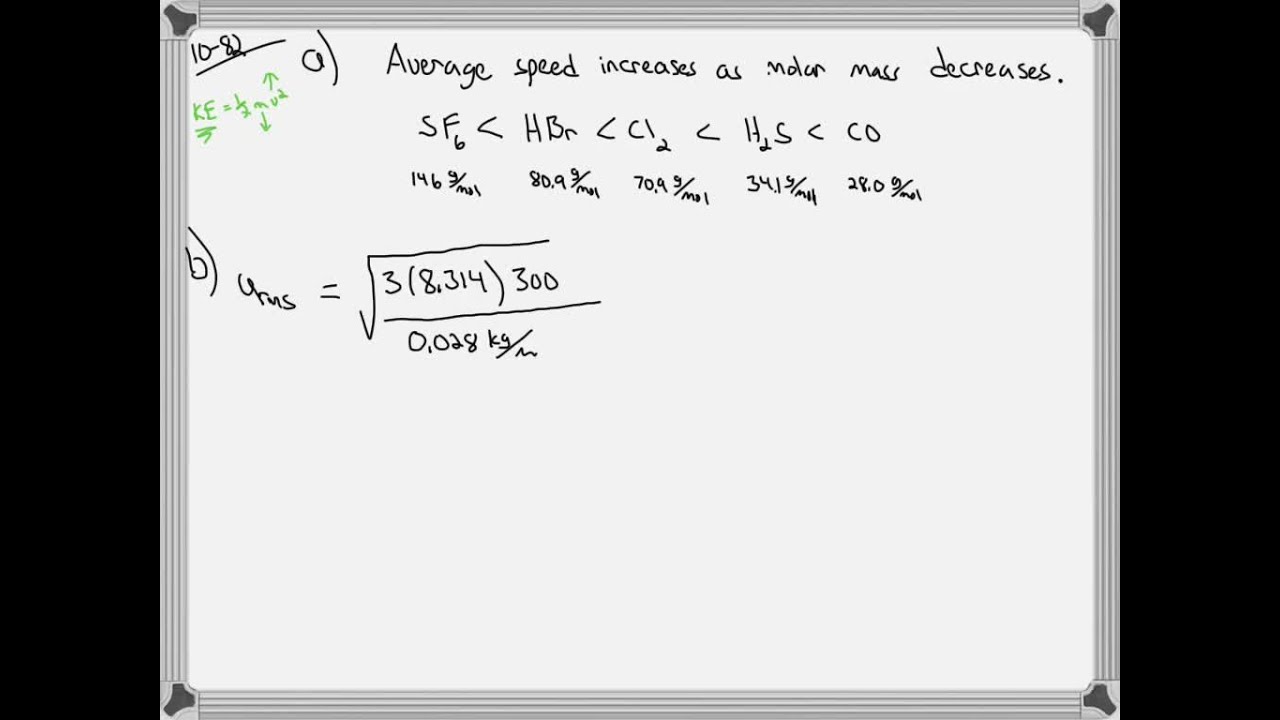 10-82
a) Average speed increases as molar mass decreases.
KE = ½mv²
SF₆ < HBr < Cl₂ < H₂S < CO
146 g/mol 80.9 g/mol 70.9 g/mol 34.1 g/mol 28.0 g/mol
b) urms = √3(8.314)300
0.028 kg/m